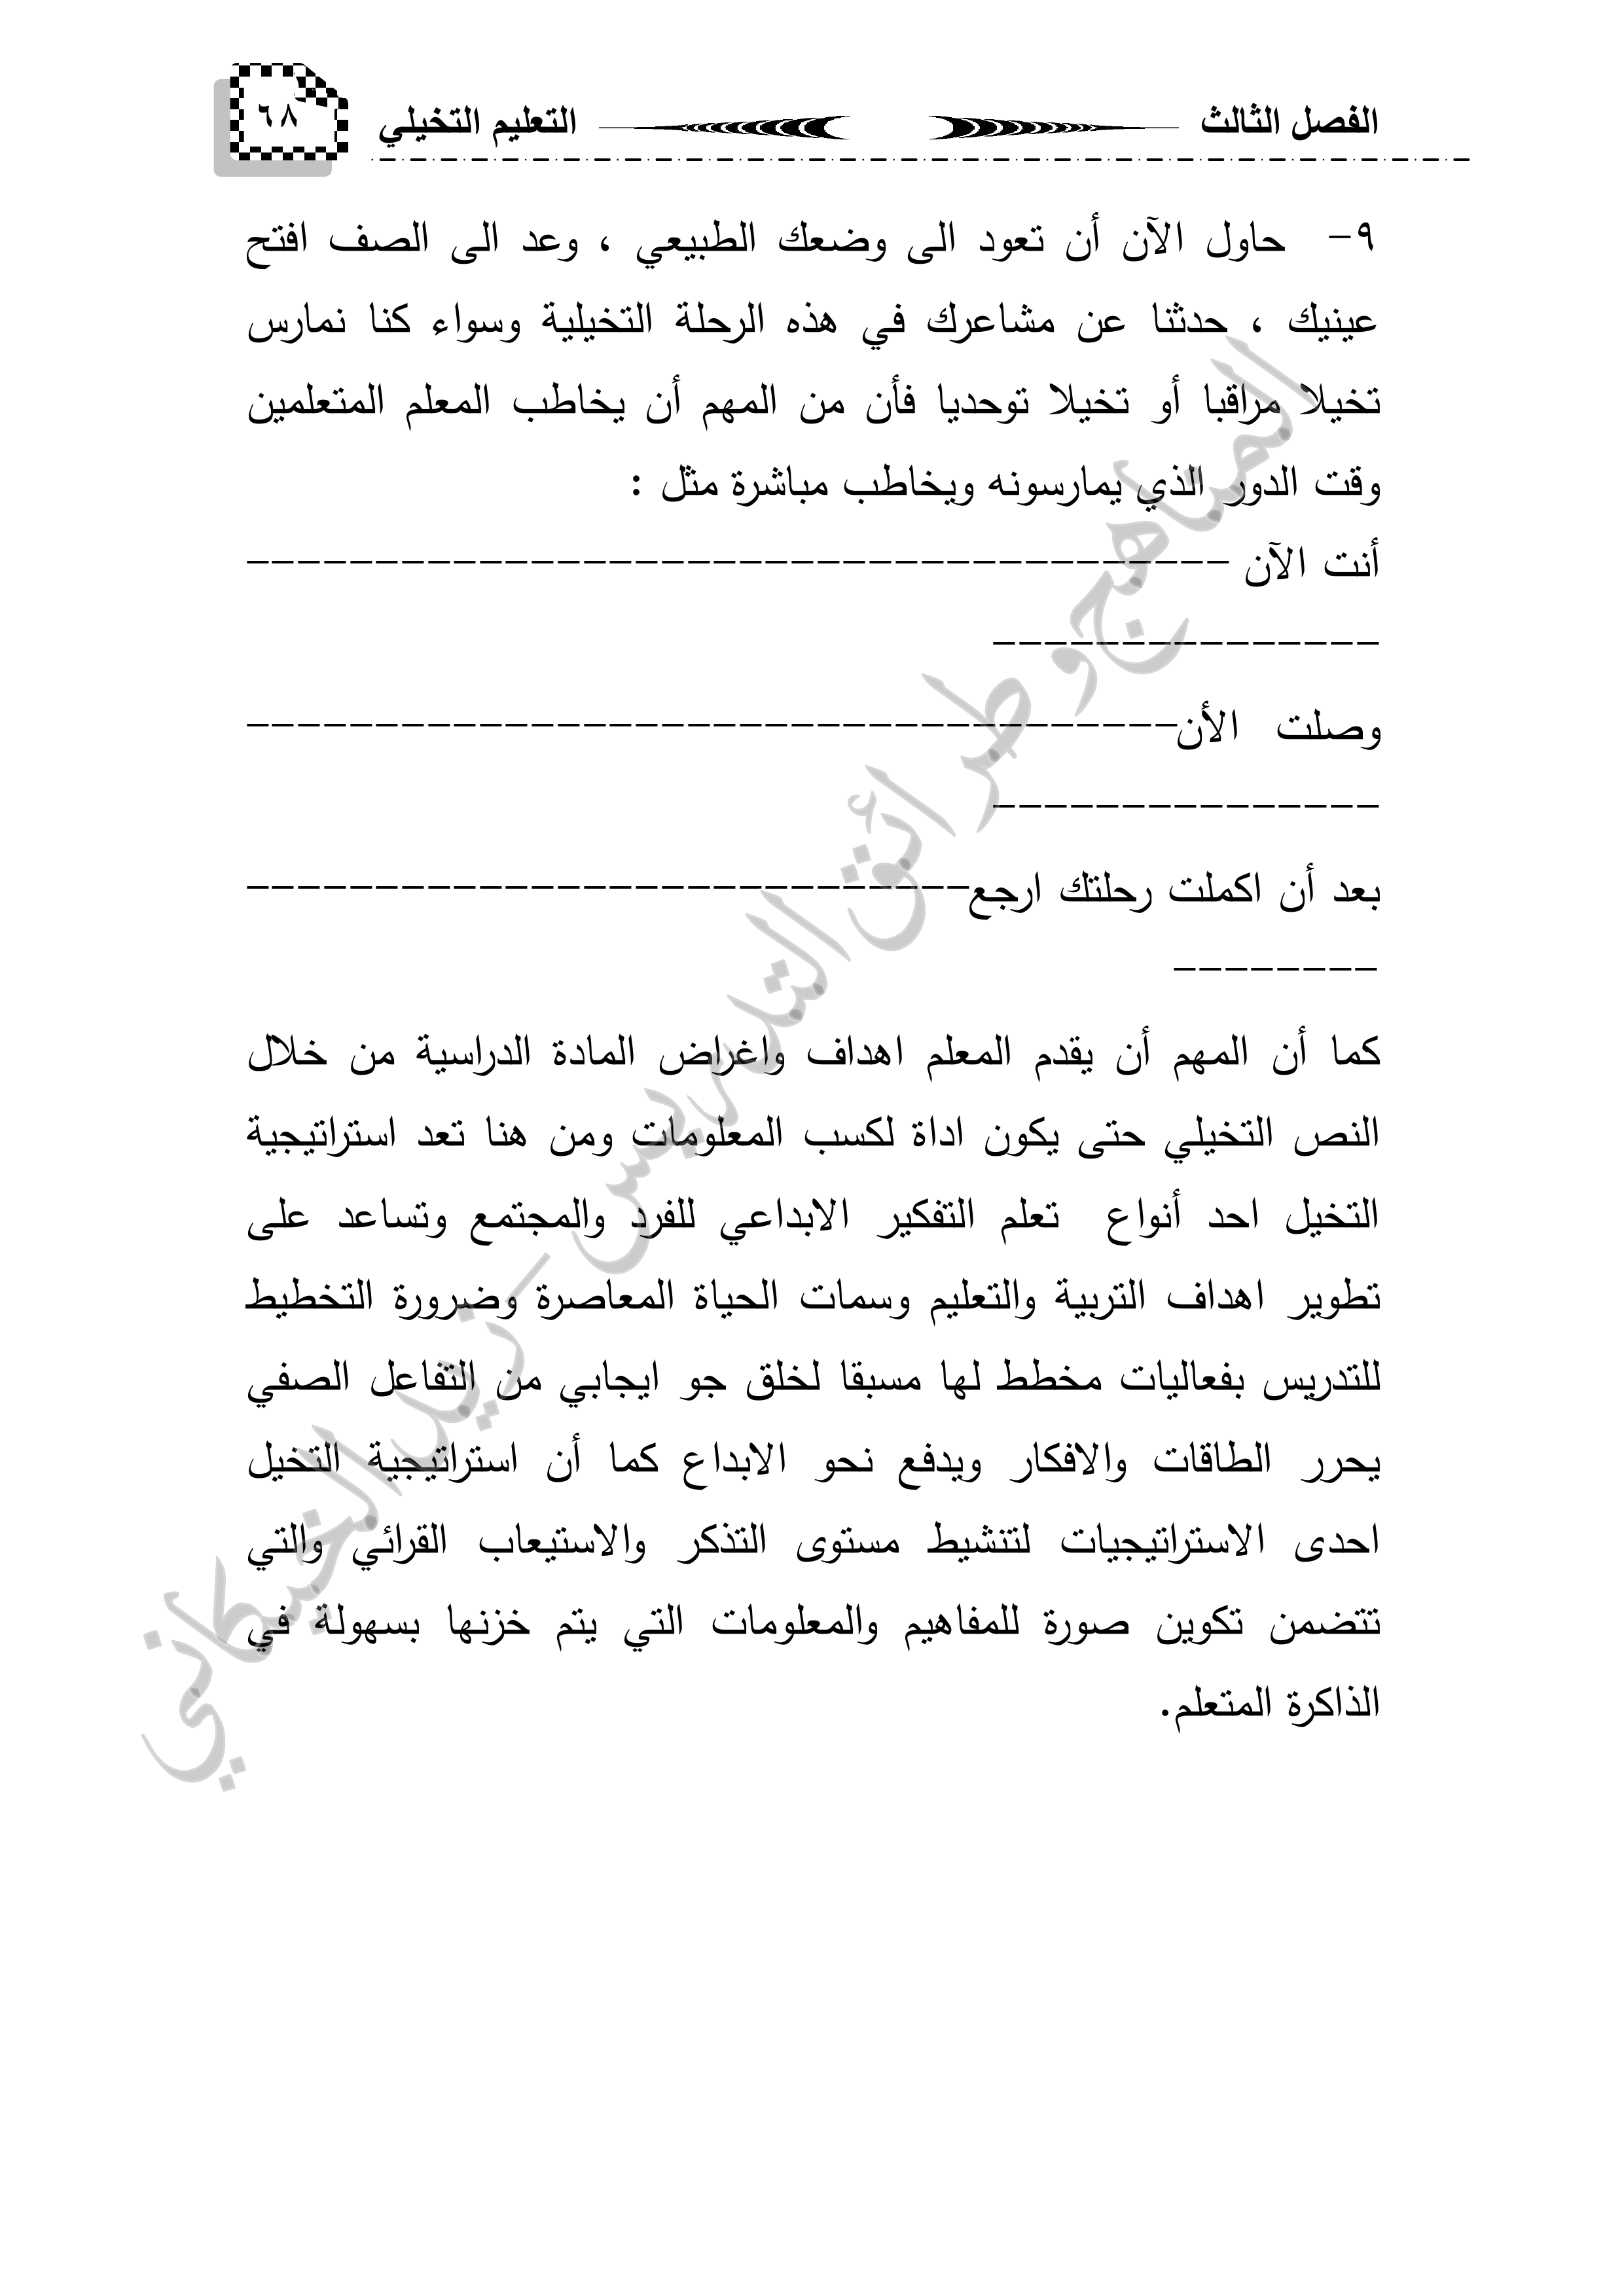 الفصل الثالث
التعليم التخيلي
٦٨
٩- حاول الآن أن تعود الى وضعك الطبيعي ، وعد الى الصف افتح
عينيك ، حدثنا عن مشاعرك في هذه الرحلة التخيلية وسواء كنا نمارس
تخيلا مراقبا أو تخيلا توحديا فأن من المهم أن يخاطب المعلم المتعلمين
وقت الدور الذي يمارسونه ويخاطب مباشرة مثل :
أنت الآن --------------------------------------
---------------
وصلت الأن------------------------------------
---------------
بعد أن اكملت رحلتك ارجع----------------------------
--------
كما أن المهم أن يقدم المعلم اهداف واغراض المادة الدراسية من خلال
النص التخيلي حتى يكون اداة لكسب المعلومات ومن هنا تعد استراتيجية
التخيل احد أنواع تعلم التفكير الابداعي للفرد والمجتمع وتساعد على
تطوير اهداف التربية والتعليم وسمات الحياة المعاصرة وضرورة التخطيط
للتدريس بفعاليات مخطط لها مسبقا لخلق جو ايجابي من التفاعل الصفي
يحرر الطاقات والافكار ويدفع نحو الابداع كما أن استراتيجية التخيل
احدى الاستراتيجيات لتنشيط مستوى التذكر والاستيعاب القرائي والتي
تتضمن تكوين صورة للمفاهيم والمعلومات التي يتم خزنها بسهولة في
الذاكرة المتعلم.
المناهج وطرائق التدريس – زيد الخيكاني